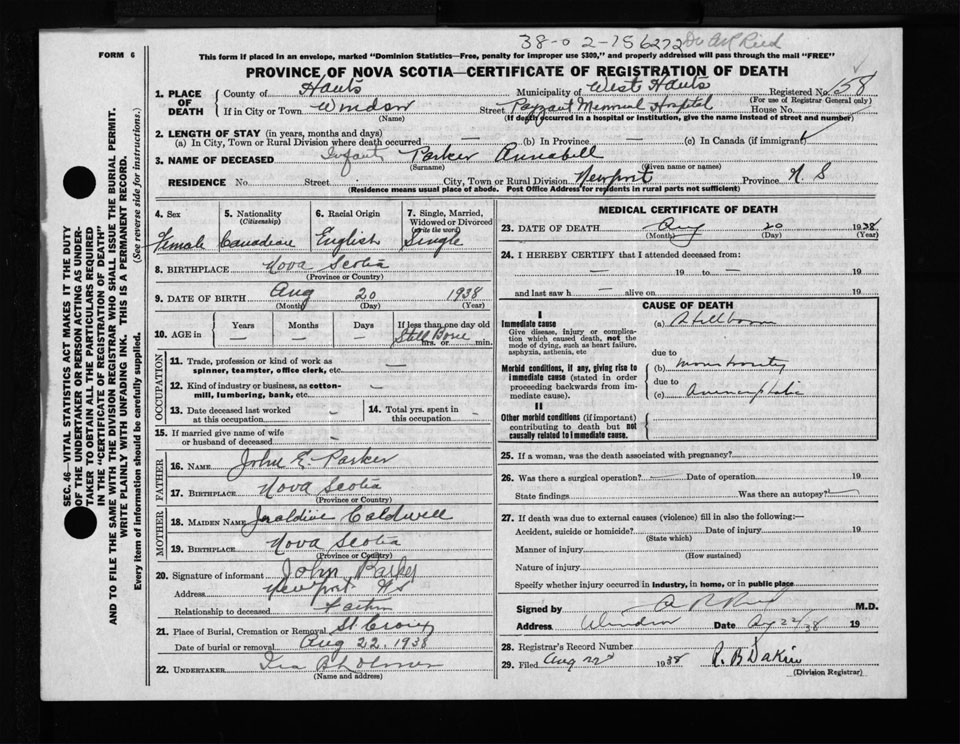 38-0 2-156272 Dr AR Reid
FORM 6
This form if placed in an envelope, marked "Dominion Statistics—Free, penalty for improper use $300," and properly addressed will pass through the mail "FREE"
PROVINCE OF NOVA SCOTIA—CERTIFICATE OF REGISTRATION OF DEATH
1. PLACE OF DEATH
County of Hants Municipality of West Hants Registered No. 158
(For use of Registrar General only)
If in City or Town Windsor Street Payzant Memorial Hospital House No.
(Name) (If death occurred in a hospital or institution, give the name instead of street and number)
2. LENGTH OF STAY (in years, months and days)
(a) In City, Town or Rural Division where death occurred — (b) In Province — (c) In Canada (if immigrant)
3. NAME OF DECEASED Infant Parker Annabell
(Surname) (Given name or names)
RESIDENCE No. Street City, Town or Rural Division Newport Province N. S
(Residence means usual place of abode. Post Office Address for residents in rural parts not sufficient)
4. Sex Female
5. Nationality (Citizenship) Canadian
6. Racial Origin English
7. Single, Married, Widowed or Divorced (write the word) Single
8. BIRTHPLACE Nova Scotia
(Province or Country)
9. DATE OF BIRTH Aug 20 1938
(Month) (Day) (Year)
10. AGE in Years Months Days If less than one day old
— — — Still Born hrs. or min.
OCCUPATION
11. Trade, profession or kind of work as spinner, teamster, office clerk, etc. —
12. Kind of industry or business, as cotton-mill, lumbering, bank, etc. —
13. Date deceased last worked at this occupation —
14. Total yrs. spent in this occupation —
15. If married give name of wife or husband of deceased -
FATHER
16. NAME John E. Parker
17. BIRTHPLACE Nova Scotia
(Province or Country)
MOTHER
18. MAIDEN NAME Jeraldine Caldwell
19. BIRTHPLACE Nova Scotia
(Province or Country)
20. Signature of informant John Parker
Address Newport NS
Relationship to deceased Father
21. Place of Burial, Cremation or Removal St Croix
Date of burial or removal Aug 22. 1938
22. UNDERTAKER Ira B Holmes
(Name and address)
MEDICAL CERTIFICATE OF DEATH
23. DATE OF DEATH Aug 20 1938
(Month) (Day) (Year)
24. I HEREBY CERTIFY that I attended deceased from:
— 19 to — 19
and last saw h — alive on — 19
CAUSE OF DEATH
I
Immediate cause
Give disease, injury or complication which caused death, not the mode of dying, such as heart failure, asphyxia, asthenia, etc
(a) Stillborn
due to
Morbid conditions, if any, giving rise to immediate cause (stated in order proceeding backwards from immediate cause).
(b) Monstrosity
due to
(c) Anencephalic
II
Other morbid conditions (if important) contributing to death but not causally related to immediate cause.
25. If a woman, was the death associated with pregnancy?
26. Was there a surgical operation? — Date of operation 19
State findings Was there an autopsy? —
27. If death was due to external causes (violence) fill in also the following:—
Accident, suicide or homicide? Date of injury 19
(State which)
Manner of injury
(How sustained)
Nature of injury
Specify whether injury occurred in industry, in home, or in public place
Signed by A R Reid M.D.
Address Windsor Date Aug 22/38 19
28. Registrar's Record Number
29. Filed Aug 22 1938 R. B Dakin
(Division Registrar)
SEC. 46—VITAL STATISTICS ACT MAKES IT THE DUTY
OF THE UNDERTAKER OR PERSON ACTING AS UNDER-
TAKER TO OBTAIN ALL THE PARTICULARS REQUIRED
IN THE "CERTIFICATE OF REGISTRATION OF DEATH"
AND TO FILE THE SAME WITH THE DIVISION REGISTRAR WHO SHALL ISSUE THE BURIAL PERMIT.
WRITE PLAINLY WITH UNFADING INK. THIS IS A PERMANENT RECORD.
Every item of information should be carefully supplied. (See reverse side for instructions.)